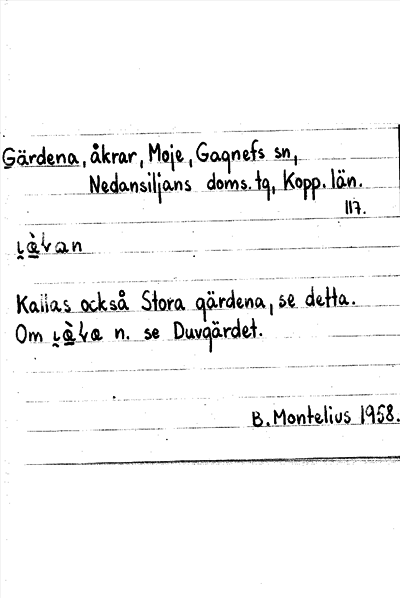 Gärdena, åkrar, Moje, Gagnefs sn,
Nedansiljans doms. tg, Kopp. län.
117.
Kallas också Stora gärdena, se detta.
Om n. se Duvgärdet.
B. Montelius 1958.